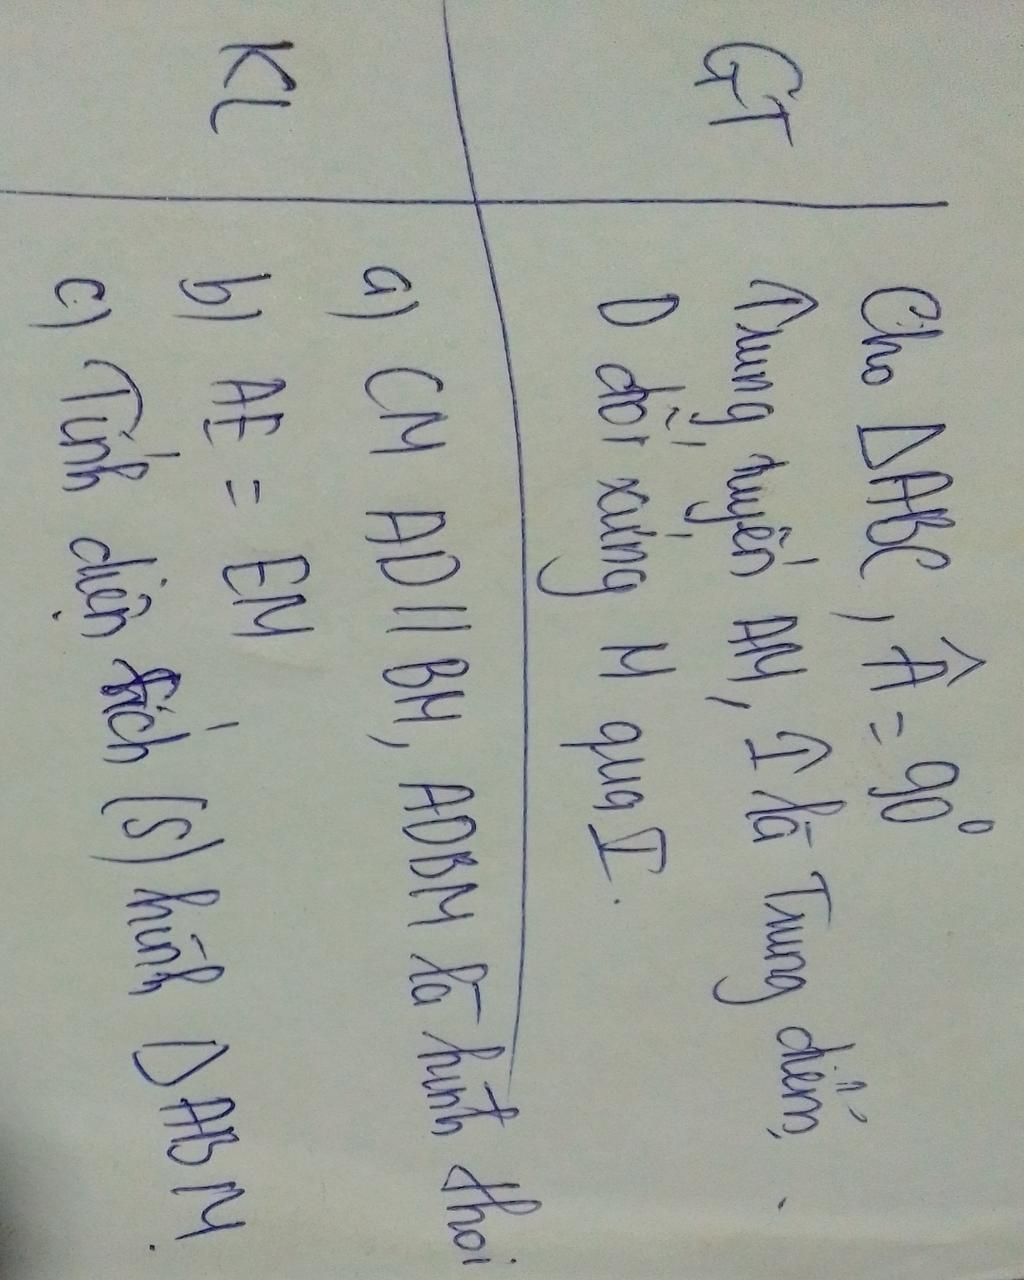 GT
Cho ΔABC, Â = 90°
Trung tuyến AM, I là Trung điểm,
D đối xứng M qua I.
KL
a) CM AD // BM, ADBM là hình thoi
b) AE = EM
c) Tính diện tích (S) hình Δ ABM.